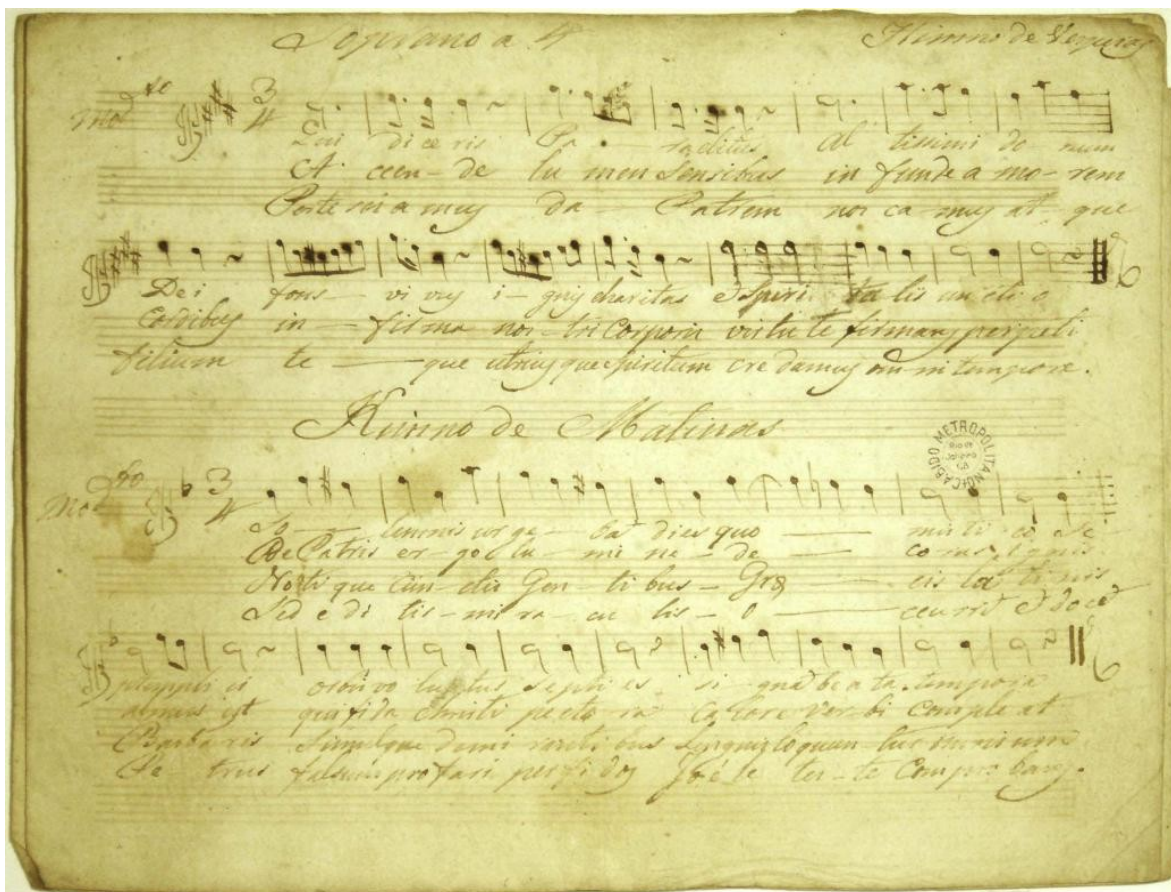 Soprano a 4
Himno de Vesperas
Mod.to
3 4
Qui diceris Pa — raclitus Al tissimi do num
Ac cen - de lu men sensibus in funde a mo - rem
Per te sci a mus da — Patrem nos ca mus at que
Dei fons — vi vus i - gnis charitas e Spiri ta lis un cti o
Cordibus in — firma nos - tri corporis virtu te firmans perpeti
filium te — que utriusque Spiritum cre damus om ni tempore.
Himno de Matinas
Mod.to
3 4
So — lemnis ur ge - bat dies quo — mis ti co Se
De Patris er - go lu - mi ne - de — co rus ignis
No tis que cun - ctis Gen - ti bus - Gre — cis la ti nis
Sed e di tis - mi ra - cu lis - o — ccurrit et docet
ptempli ci orbis vo lu tus septi es si gnat be a ta tempora
almus est qui fida Christi pecto ra ca lore ver bi comple at
Barbaris simulque
Pe trus perfidos Joé le tes - te Compro bans.
CABIDO METROPOLITANO
Rio de
Janeiro